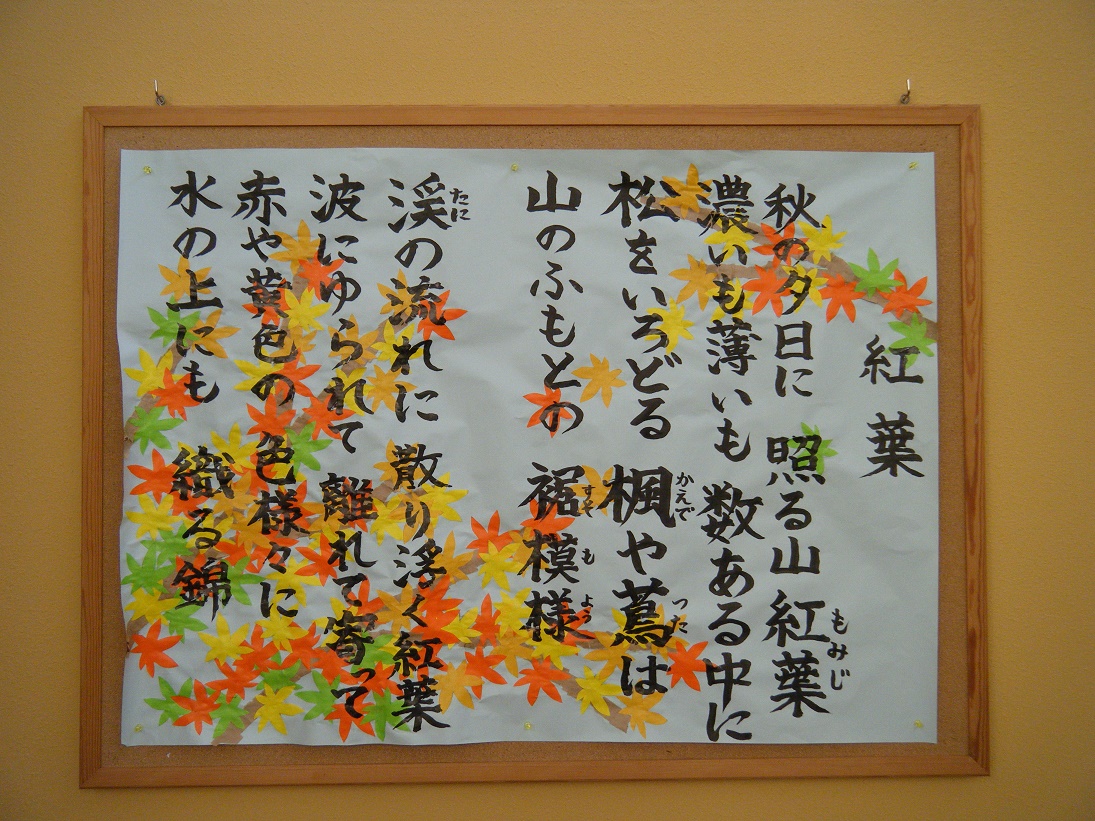 紅葉
秋の夕日に 照る山紅葉
もみじ
濃いも薄いも 数ある中に
松をいろどる 楓や蔦は
かえで
つた
山のふもとの 裾模様
すそ
も
よう
渓の流れに 散り浮く紅葉
たに
波にゆられて 離れて寄って
赤や黄色の 色様々に
水の上にも 織る錦